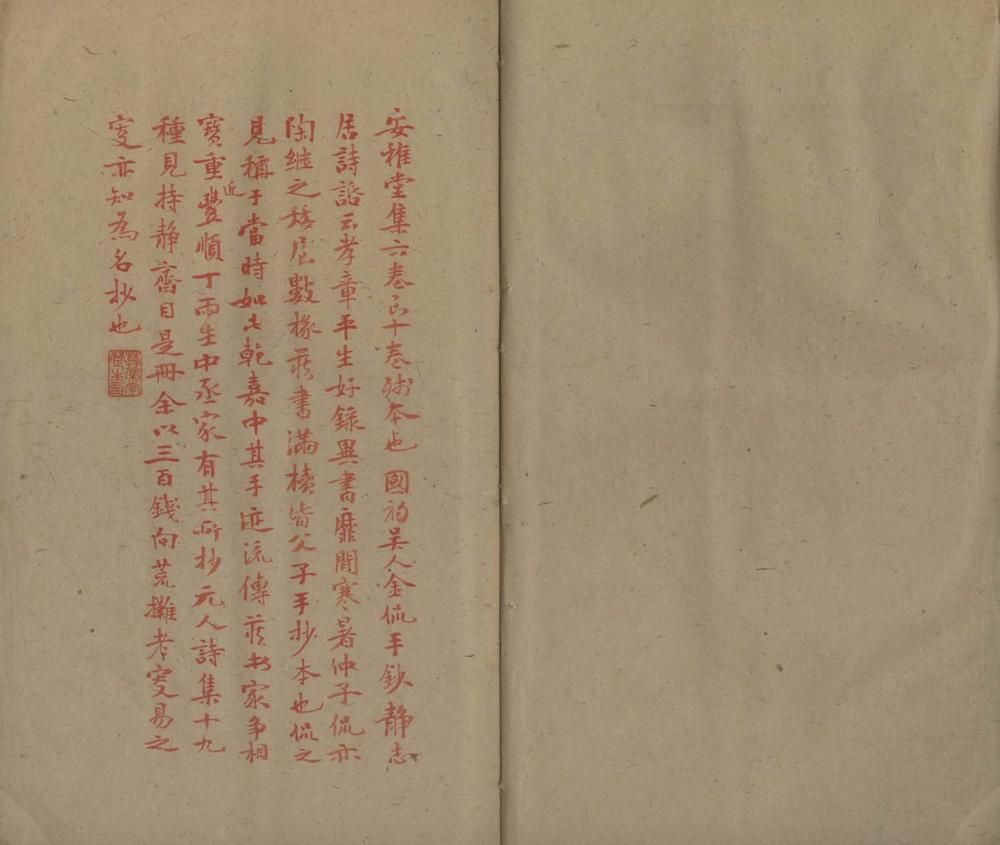 安雅堂集六卷正十卷殘本也國初吳人金侃手鈔靜志
居詩話云孝章平生好錄異書靡閒寒暑仲子侃亦
陶繼之矮屋數椽藏書滿櫝皆父子手抄本也侃之
見稱于當時如此乾嘉中其手迹流傳藏書家爭相
寶重近豐順丁雨生中丞家有其所抄元人詩集十九
種見持靜齋目是冊余以三百錢向荒攤老叟易之
叟亦知為名抄也